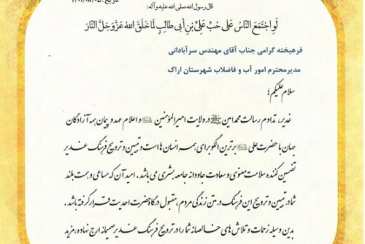 قال رسول الله صلی الله علیه و آله:
لَو اجتَمَعَ النّاسُ عَلی حُبِّ عَلیِّ بنِ أبی طالِبٍ لَما خَلَقَ اللهُ عَزَّوَجَلَّ النّارَ
فرهیخته گرامی جناب آقای مهندس سرآبادانی
مدیر محترم امور آب و فاضلاب شهرستان اراک
سلام علیکم؛
غدیر، تداوم رسالت محمد امین در ولایت امیرالمؤمنین و اعلام عهد و پیمان همه آزادگان
جهان با حضرت علی برترین الگو برای همه انسان هاست و تبیین و ترویج فرهنگ غدیر
تضمین کننده سلامت معنوی و سعادت جاودانه جامعه بشری می باشد. امید آن که مساعی و همت بلند
شما در تبیین و ترویج این فرهنگ در متن زندگی مردم، مقبول درگاه حضرت احدیت قرار گرفته باشد.
بدین وسیله زحمات و تلاش های خالصانه شما را در ترویج فرهنگ غدیر صمیمانه ارج نهاده، مزید